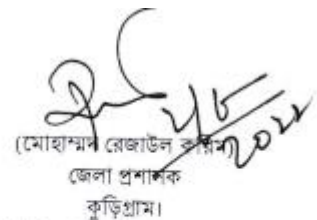 (মোহাম্মদ রেজাউল করিম)
জেলা প্রশাসক
কুড়িগ্রাম।